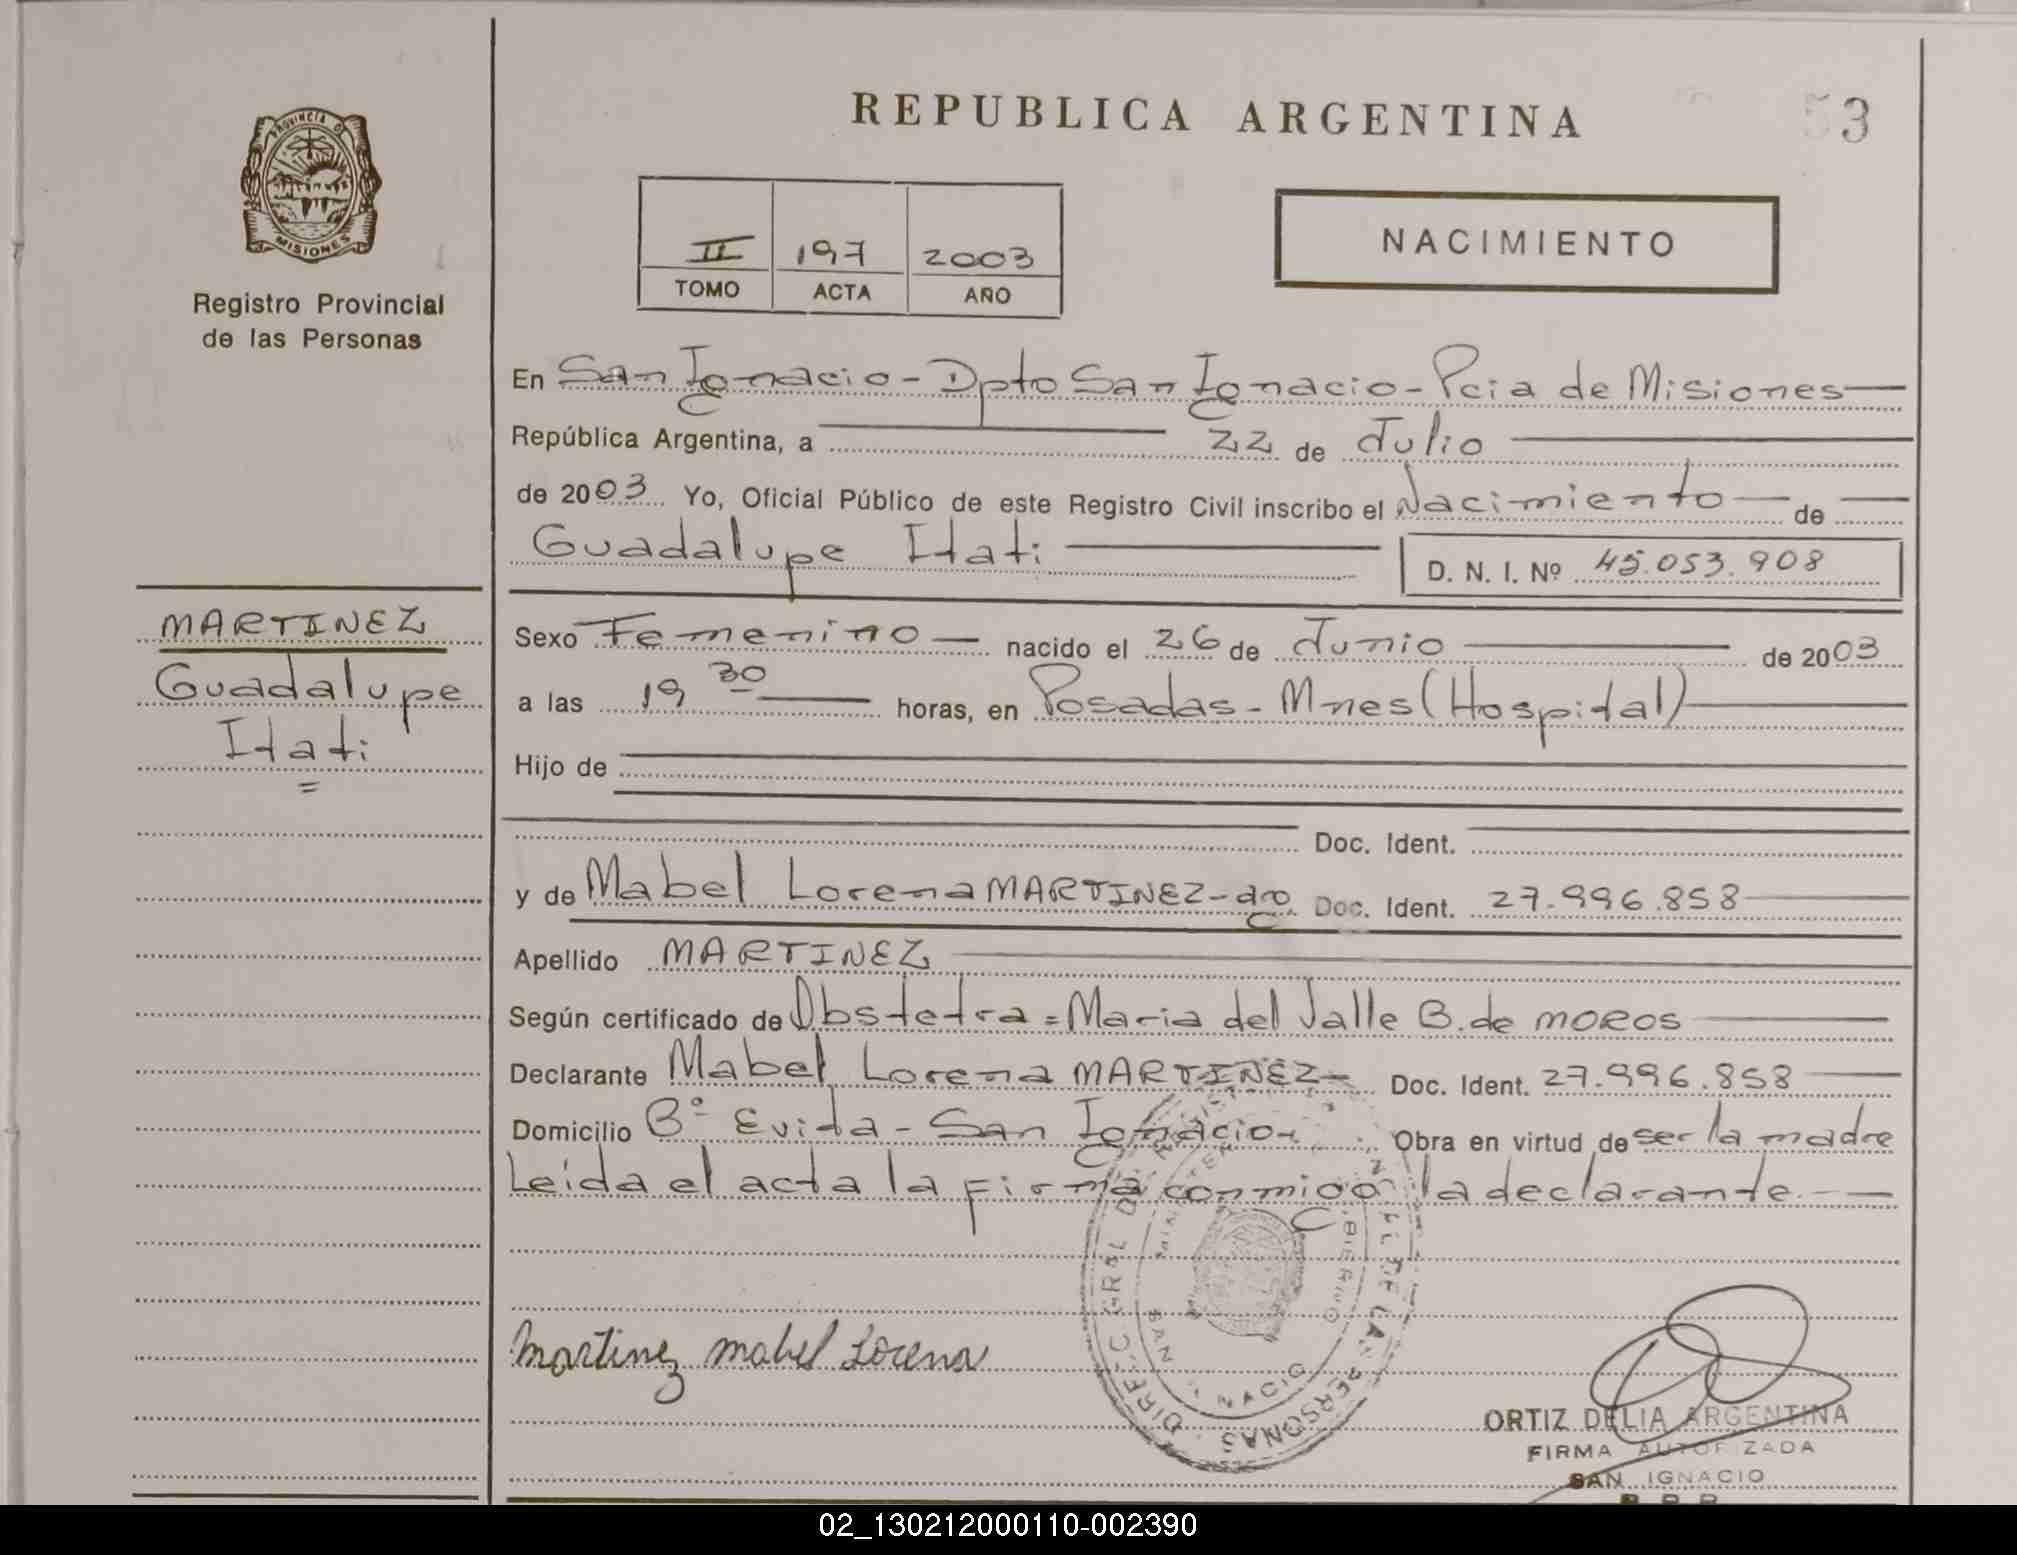 REPUBLICA ARGENTINA
53
PROVINCIA DE
MISIONES
Registro Provincial
de las Personas
II 197 2003
TOMO ACTA AÑO
NACIMIENTO
En San Ignacio - Dpto San Ignacio - Pcia de Misiones
República Argentina, a 22 de Julio
de 2003 Yo, Oficial Público de este Registro Civil inscribo el Nacimiento de
Guadalupe Itati
D. N. I. Nº 45.053.908
MARTINEZ
Guadalupe
Itati
=
Sexo Femenino nacido el 26 de Junio de 2003
a las 19 30 horas, en Posadas - Mnes (Hospital)
Hijo de
Doc. Ident.
y de Mabel Lorena MARTINEZ - arg Doc. Ident. 27.996.858
Apellido MARTINEZ
Según certificado de Obstetra = Maria del Valle B. de MOROS
Declarante Mabel Lorena MARTINEZ - Doc. Ident. 27.996.858
Domicilio Bº Evita - San Ignacio - Obra en virtud de ser la madre
Leída el acta la firma conmigo la declarante. - -
Martinez Mabel Lorena
PERSONAS
SAN
ORTIZ DELIA ARGENTINA
FIRMA AUTORIZADA
SAN IGNACIO
02_130212000110-002390